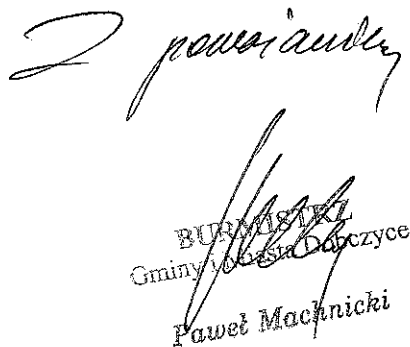 Z poważaniem
BURMISTRZ
Gminy i Miasta Dobczyce
Paweł Machnicki